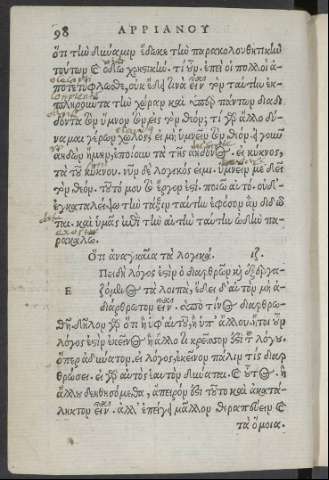 98 ΑΡΡΙΑΝΟΥ
ὅτι τὴν δύναμιν ἔδωκε τὴν παρακολουθητικὴν
τούτων καὶ ὁδῷ χρηστικήν. τί οὖν. ἐπεὶ οἱ πολλοὶ ἀ-
ποτετύφλωσθε, οὐκ ἔδει τινὰ εἶναι τὸν ταύτην ἐκ-
πληροῦντα τὴν χώραν καὶ ὑπὲρ πάντων διδό
δοντα τὸν ὕμνον τὸν εἰς τὸν θεόν; τί γὰρ ἄλλο δύ-
ναμαι γέρων χωλὸς, εἰ μὴ ὑμνεῖν τὸν θεόν. εἰ γοῦν
ἀηδὼν ἤμην, ἐποίουν τὰ τῆς ἀηδόνος. εἰ κύκνος,
τὰ τοῦ κύκνου. νῦν δὲ λογικός εἰμι. ὑμνεῖν με δεῖ
τὸν θεόν. τοῦτό μου τὸ ἔργον ἐστί. ποιῶ αὐτό. οὐδ'
ἐγκαταλείψω τὴν τάξιν ταύτην ἐφόσον ἂν διδῶ
ται. καὶ ὑμᾶς ἐπὶ τὴν αὐτὴν ταύτην ᾠδὴν πα-
ρακαλῶ.
Ὅτι ἀναγκαῖα τὰ λογικά. ιζ.
Ε Πειδὴ λόγος ἐστὶν ὁ διαρθρῶν καὶ ἐξεργα-
ζόμενος τὰ λοιπά, ἔδει δ' αὐτὸν μὴ ἀ-
διάρθρωτον εἶναι. ὑπὸ τίνος διαρθρω-
θῇ. δῆλον γὰρ ὅτι ἢ ὑφ' αὑτοῦ, ἢ ὑπ' ἄλλου. ἤτοι οὖν
λόγος ἐστὶν ἐκεῖνος ἢ ἄλλο τι κρεῖσσον ἔσται τοῦ λόγου.
ὅπερ ἀδύνατον. εἰ λόγος, ἐκεῖνον πάλιν τίς διαρ
θρώσει. εἰ γὰρ αὐτὸς ἑαυτὸν δύναται. καὶ οὗτος. ἢ
ἄλλου δεηθησόμεθα, ἄπειρον ἔσται τοῦτο καὶ ἀκατά-
ληκτον εἶναι. ἀλλ' ἐπείγει μᾶλλον θεραπεύειν καὶ
τὰ ὅμοια.